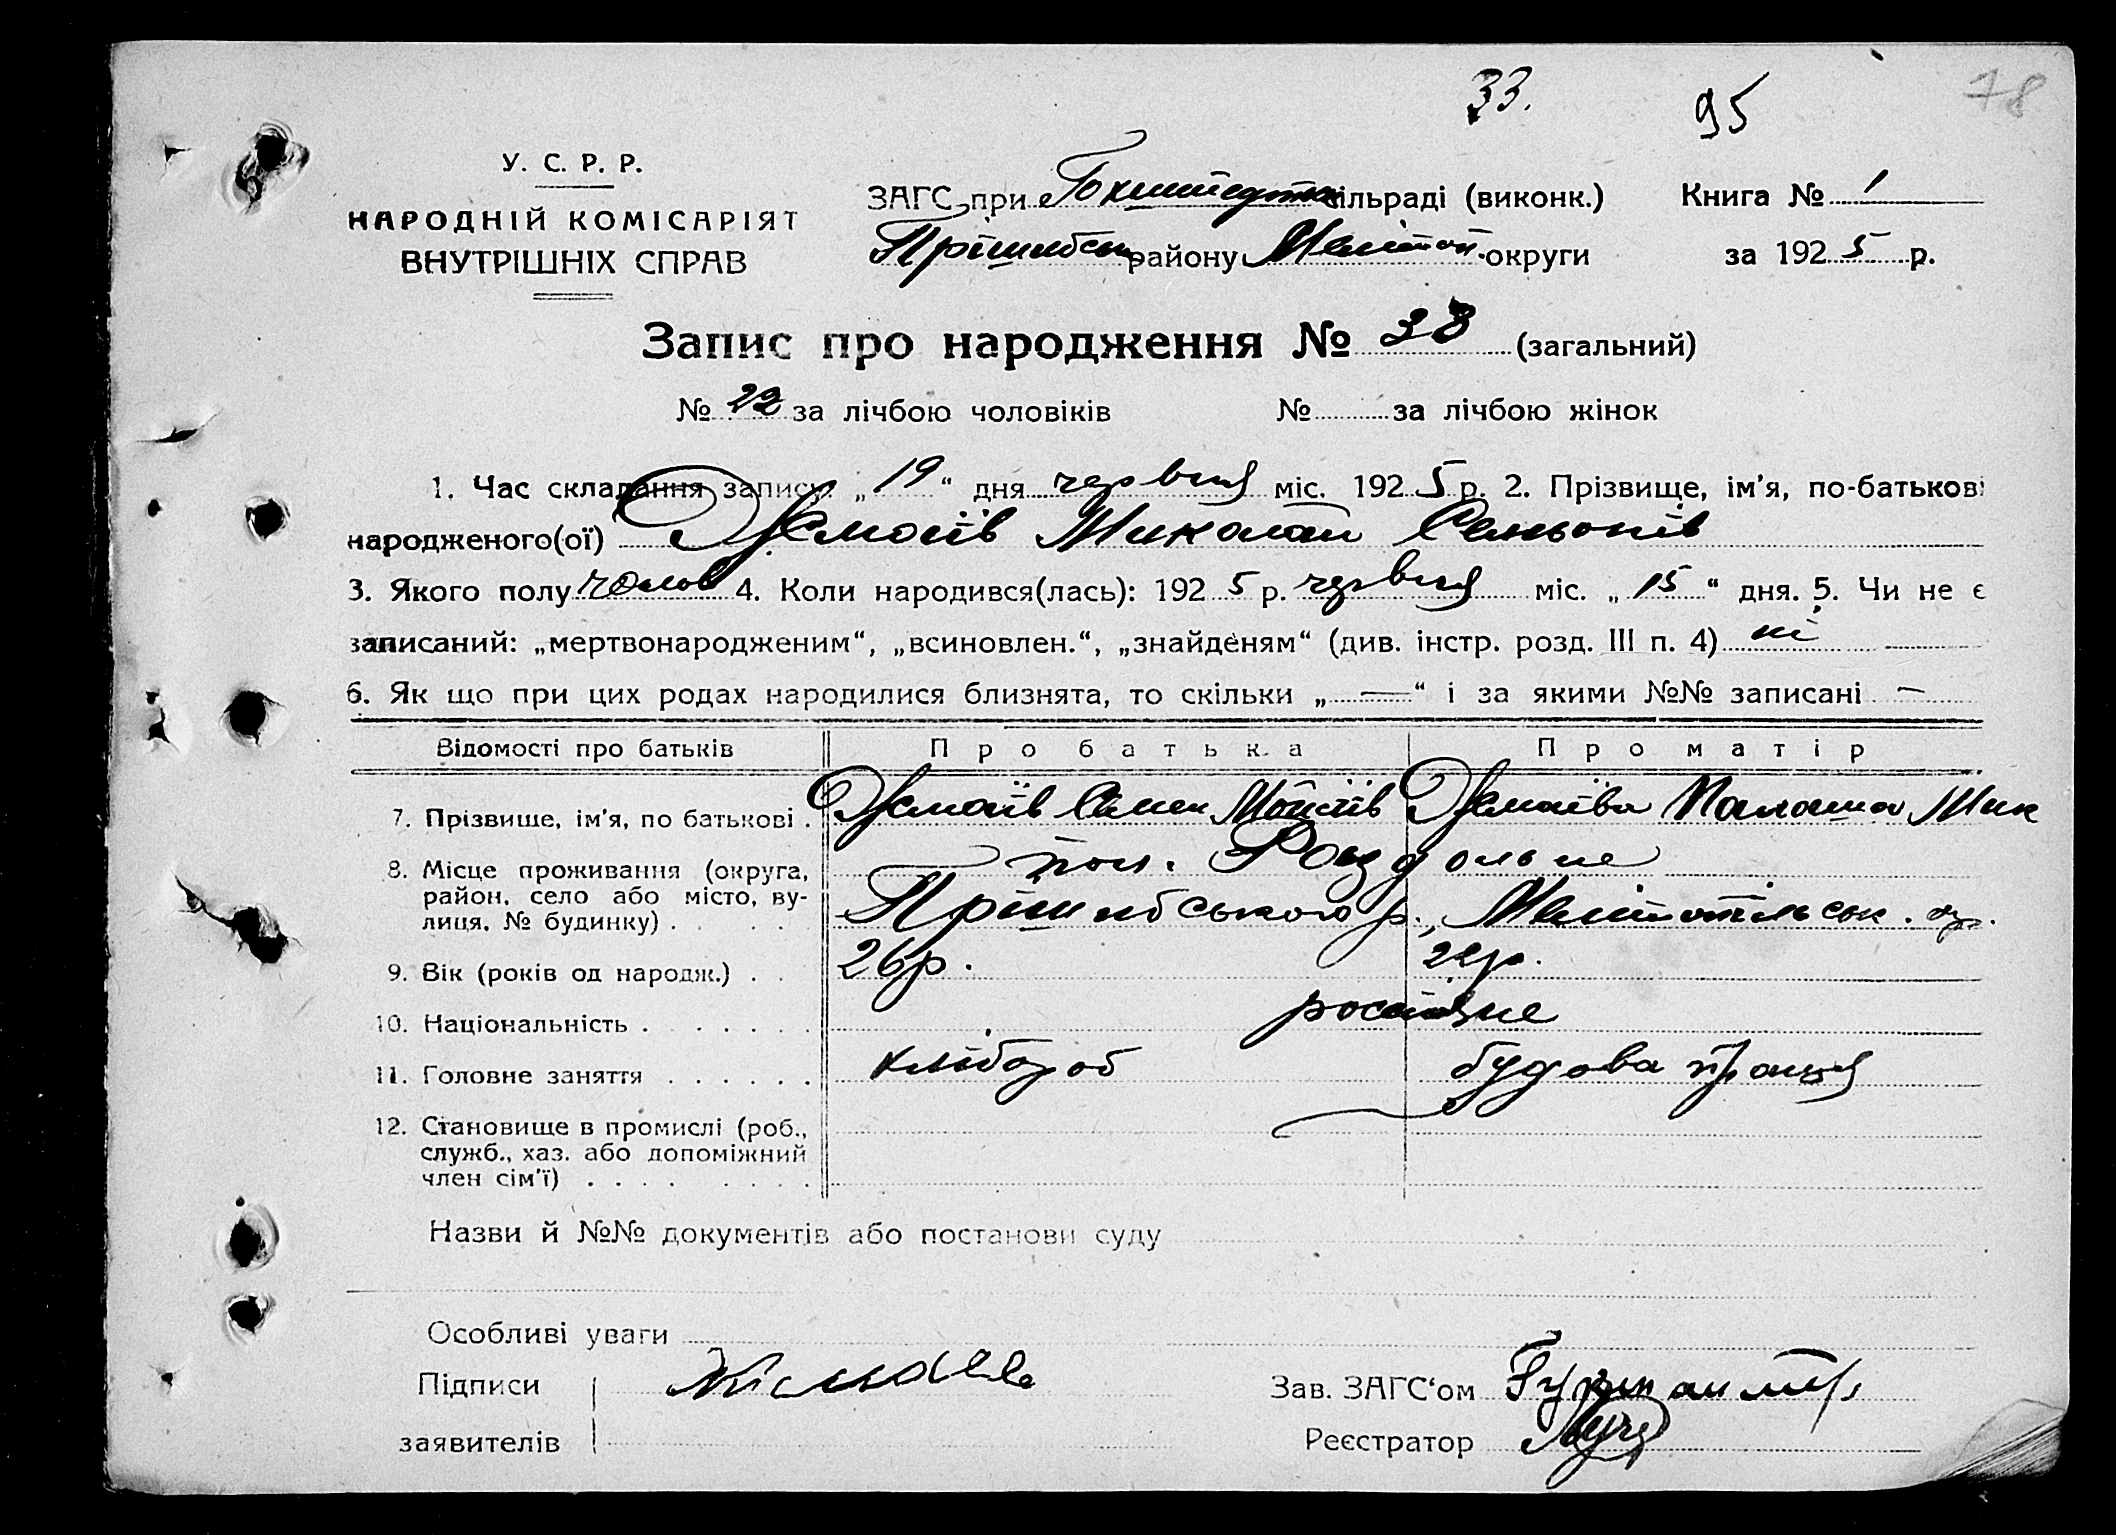 33. 95 78
У. С. Р. Р.
НАРОДНІЙ КОМІСАРІЯТ
ВНУТРІШНІХ СПРАВ
ЗАГС при Гохштедтск сільраді (виконк.) Книга № 1
Пришибськ району Мелітоп. округи за 1925 р.
Запис про народження № 38 (загальний)
№ 22 за лічбою чоловіків № за лічбою жінок
1. Час складання запису: „19“ дня червня міс. 1925 р. 2. Прізвище, ім’я, по-батькові
народженого(ої) Жмаїв Микола Семьонів
3. Якого полу чолов 4. Коли народився(лась): 1925 р. червня міс. „15“ дня. 5. Чи не є
записаний: „мертвонародженим“, „всиновлен.“, „знайденям“ (див. інстр. розд. III п. 4) ні
6. Як що при цих родах народилися близнята, то скільки „—“ і за якими №№ записані —
Відомості про батьків Про батька Про матір
7. Прізвище, ім’я, по батькові . Жмаїв Семен Жмаїва Палаша Мик
8. Місце проживання (округа, район, село або місто, вулиця, № будинку) . . пос. Роздольне
Пришибського р., Мелітопільськ. окр.
9. Вік (років од народж.) . . 26 р.
10. Національність . . . . . . росіяне
11. Головне заняття . . . . . . хлібороб будова праця
12. Становище в промислі (роб.,
служб., хаз. або допоміжний
член сім’ї) . . . . . . . .
Назви й №№ документів або постанови суду
Особливі уваги
Підписи Зав. ЗАГС‘ом
заявителів Реєстратор